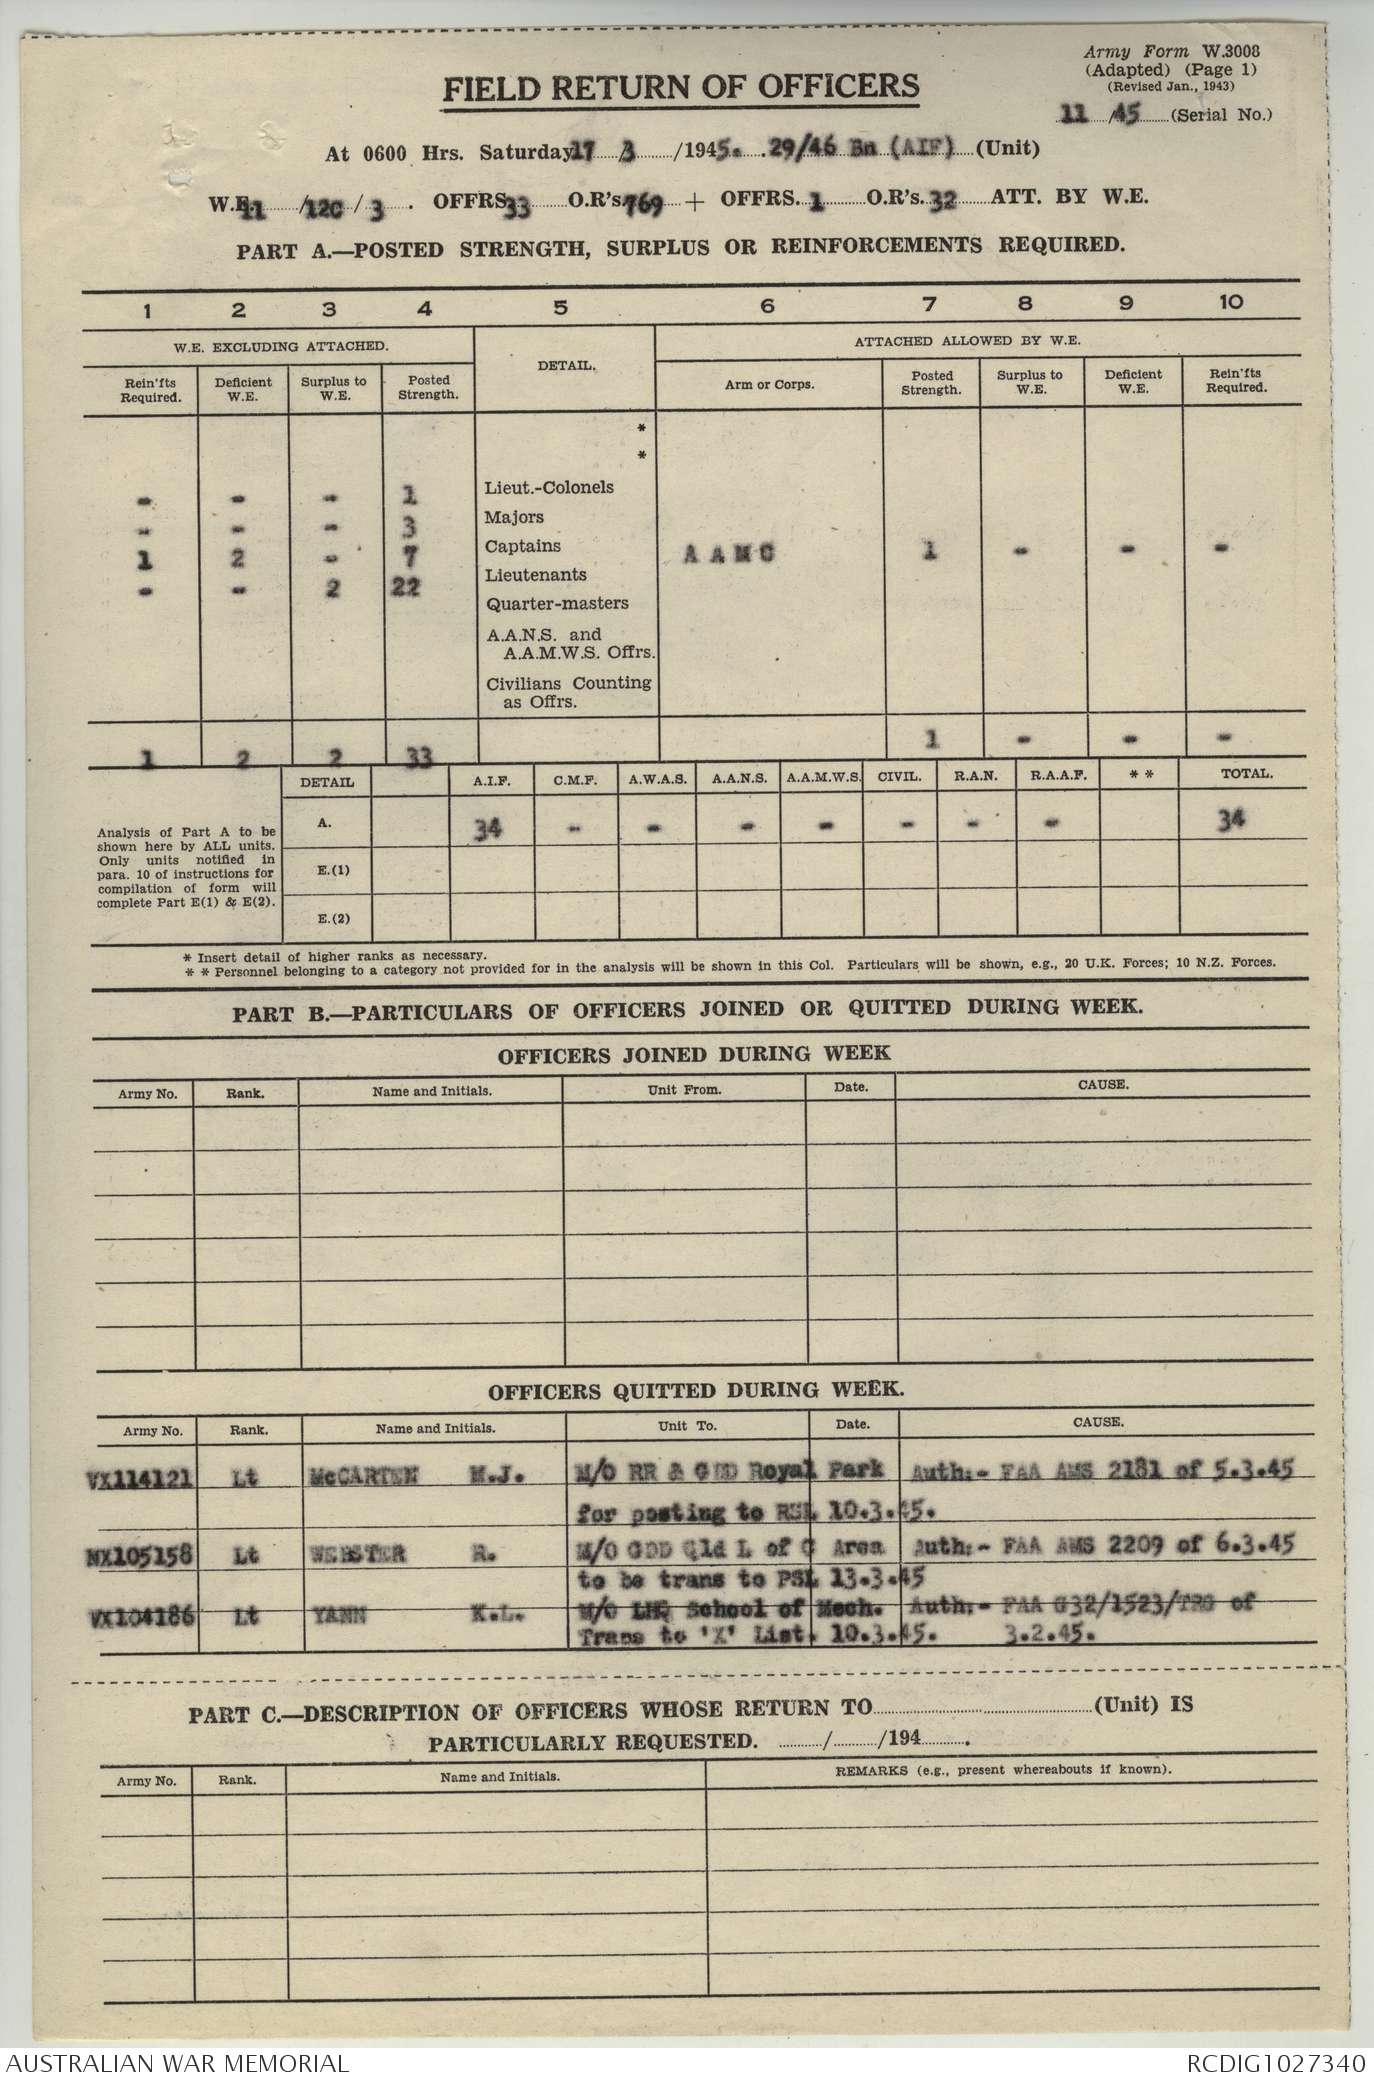 Army Form W.3008
(Adapted) (Page 1)
(Revised Jan., 1943)
FIELD RETURN OF OFFICERS
11 /45 (Serial No.)
At 0600 Hrs. Saturday 17 3 /1945. 29/46 Bn (AIF) (Unit)
W.E. 11 /12C / 3 . OFFRS. 33 O.R's. 769 + OFFRS. 1 O.R's. 32 ATT. BY W.E.
PART A.—POSTED STRENGTH, SURPLUS OR REINFORCEMENTS REQUIRED.
1 2 3 4 5 6 7 8 9 10
W.E. EXCLUDING ATTACHED. DETAIL. ATTACHED ALLOWED BY W.E.
Rein'fts Required. Deficient W.E. Surplus to W.E. Posted Strength. Arm or Corps. Posted Strength. Surplus to W.E. Deficient W.E. Rein'fts Required.
*
*
- - - 1 Lieut.-Colonels
- - - 3 Majors
1 2 - 7 Captains A A M C 1 - - -
- - 2 22 Lieutenants
Quarter-masters
A.A.N.S. and
A.A.M.W.S. Offrs.
Civilians Counting
as Offrs.
1 2 2 33 1 - - -
DETAIL A.I.F. C.M.F. A.W.A.S. A.A.N.S. A.A.M.W.S. CIVIL. R.A.N. R.A.A.F. * * TOTAL.
A. 34 - - - - - - - 34
E.(1)
E.(2)
Analysis of Part A to be
shown here by ALL units.
Only units notified in
para. 10 of instructions for
compilation of form will
complete Part E(1) & E(2).
* Insert detail of higher ranks as necessary.
* * Personnel belonging to a category not provided for in the analysis will be shown in this Col. Particulars will be shown, e.g., 20 U.K. Forces; 10 N.Z. Forces.
PART B.—PARTICULARS OF OFFICERS JOINED OR QUITTED DURING WEEK.
OFFICERS JOINED DURING WEEK
Army No. Rank. Name and Initials. Unit From. Date. CAUSE.
OFFICERS QUITTED DURING WEEK.
Army No. Rank. Name and Initials. Unit To. Date. CAUSE.
VX114121 Lt McCARTEN M.J. M/O RR & GDD Royal Park Auth:- FAA AMS 2181 of 5.3.45
for posting to RSL 10.3.45.
NX105158 Lt WEBSTER R. M/O GDD Qld L of C Area Auth:- FAA AMS 2209 of 6.3.45
to be trans to PSL 13.3.45
VX104186 Lt YANN K.L. M/O LHQ School of Mech. Auth:- FAA G32/1523/TRG of
Trans to 'X' List. 10.3.45. 3.2.45.
PART C.—DESCRIPTION OF OFFICERS WHOSE RETURN TO (Unit) IS
PARTICULARLY REQUESTED. / /194 .
Army No. Rank. Name and Initials. REMARKS (e.g., present whereabouts if known).
AUSTRALIAN WAR MEMORIAL RCDIG1027340